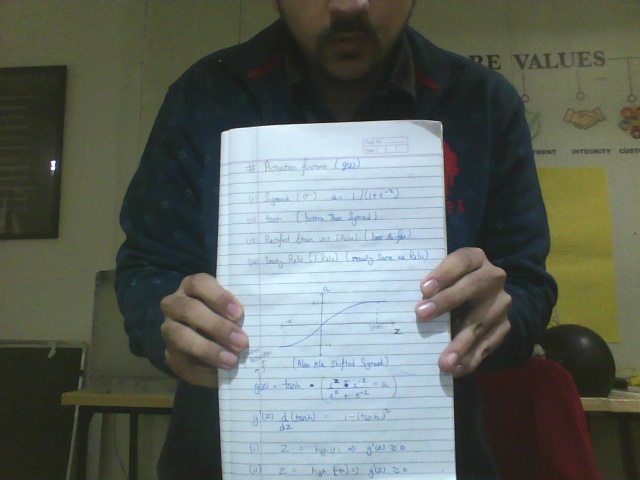 RE VALUES
INTEGRITY
# Activation functions (g(z))
(i) Sigmoid (σ) a = 1/(1+e^-z)
(ii) tanh (better than Sigmoid)
(iii) Rectified linear unit (Relu) (best so far)
(iv) Leaky Relu (L Relu) (mostly same as Relu)
a
z
(Also k/a Shifted Sigmoid)
g(z) = tanh = (e^z - e^-z / e^z + e^-z) = a
g'(z) d/dz (tanh) = 1-(tanh)²
(i) z = high(+) ⇒ g'(z) ≈ 0
(ii) z = high (-) ⇒ g'(z) ≈ 0